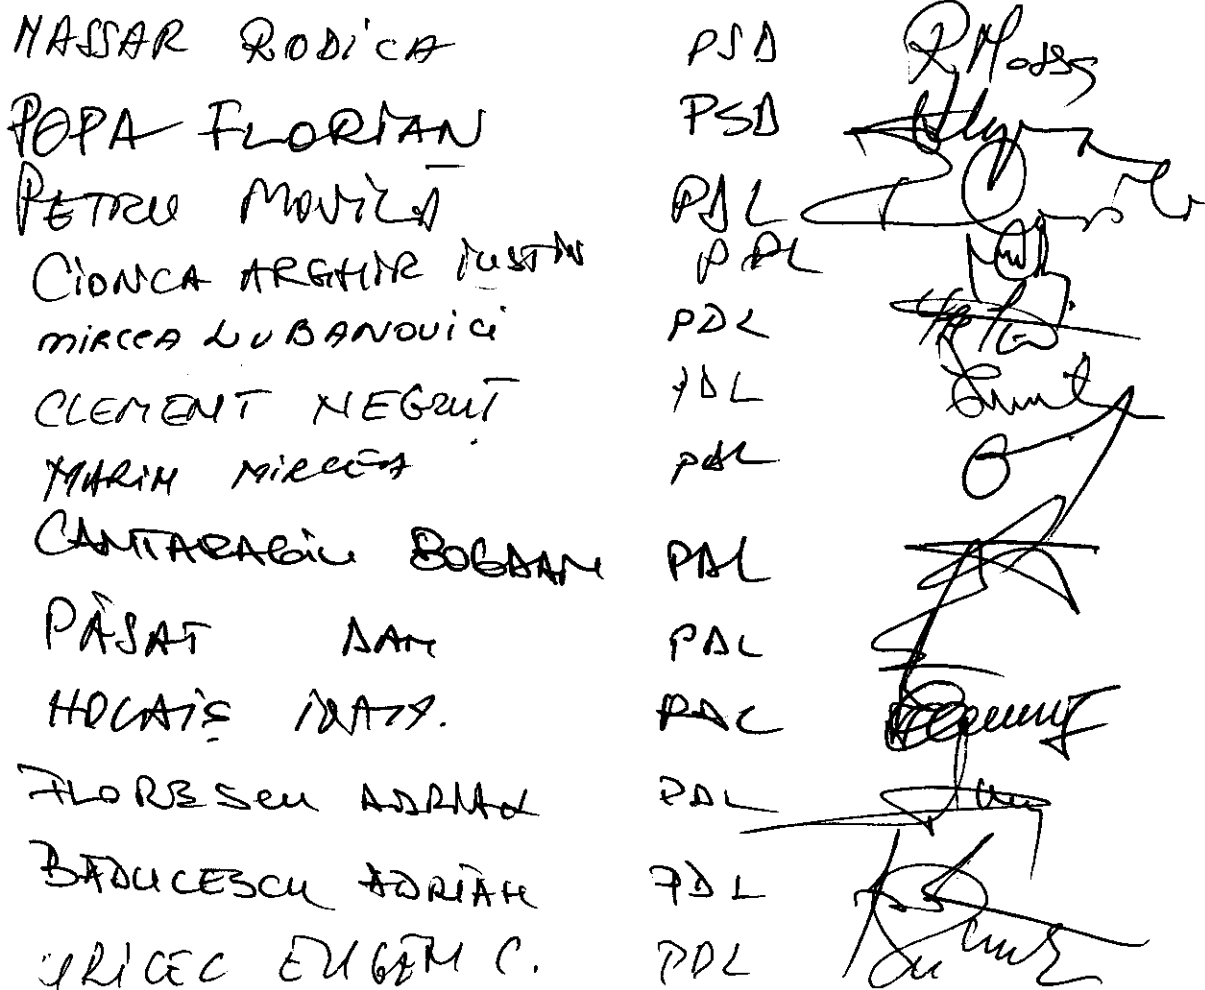 NASSAR RODICA PSD
POPA FLORIAN PSD
PETRU MOVILĂ PDL
CIONCA ARGHIR IUSTIN PDL
MIRCEA LUBANOVICI PDL
CLEMENT NEGRUȚ PDL
MARIN MIRCEA PDL
CANTARAGIU BOGDAN PDL
PĂSAT DAN PDL
PDL
FLORESCU ADRIAN PDL
BĂDULESCU ADRIAN PDL
URICEC EUGEN C. PDL